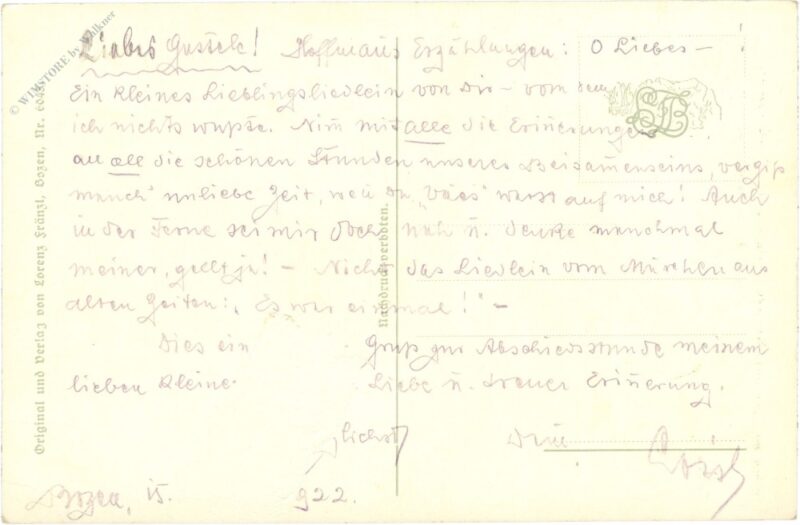 Liebes Gustele! Hoffmanns Erzählungen: O Liebes –
Ein kleines Lieblingsliedlein von Dir – von dem
ich nichts wußte. Nim̄ mit alle die Erin̄erungen
an all die schönen Stunden unseres Beisam̄enseins, vergiß
manch' unliebe Zeit, weil du "bös" warst auf mich! Auch
in der Ferne sei mir doch nah u. denke manchmal
meiner, gellt ja! – Nicht das Liedlein vom Märchen aus
alten Zeiten: "Es war einmal!" –
Dies ein Gruß zur Abschiedsstunde meinem
lieben Kleine Liebe u. treuer Erin̄erung.
lichst Dein
Bozen, 15. 922.
Original und Verlag von Lorenz Fränzl, Bozen, Nr.
Nachdruck verboten.
© WIMSTORE by Wölkner